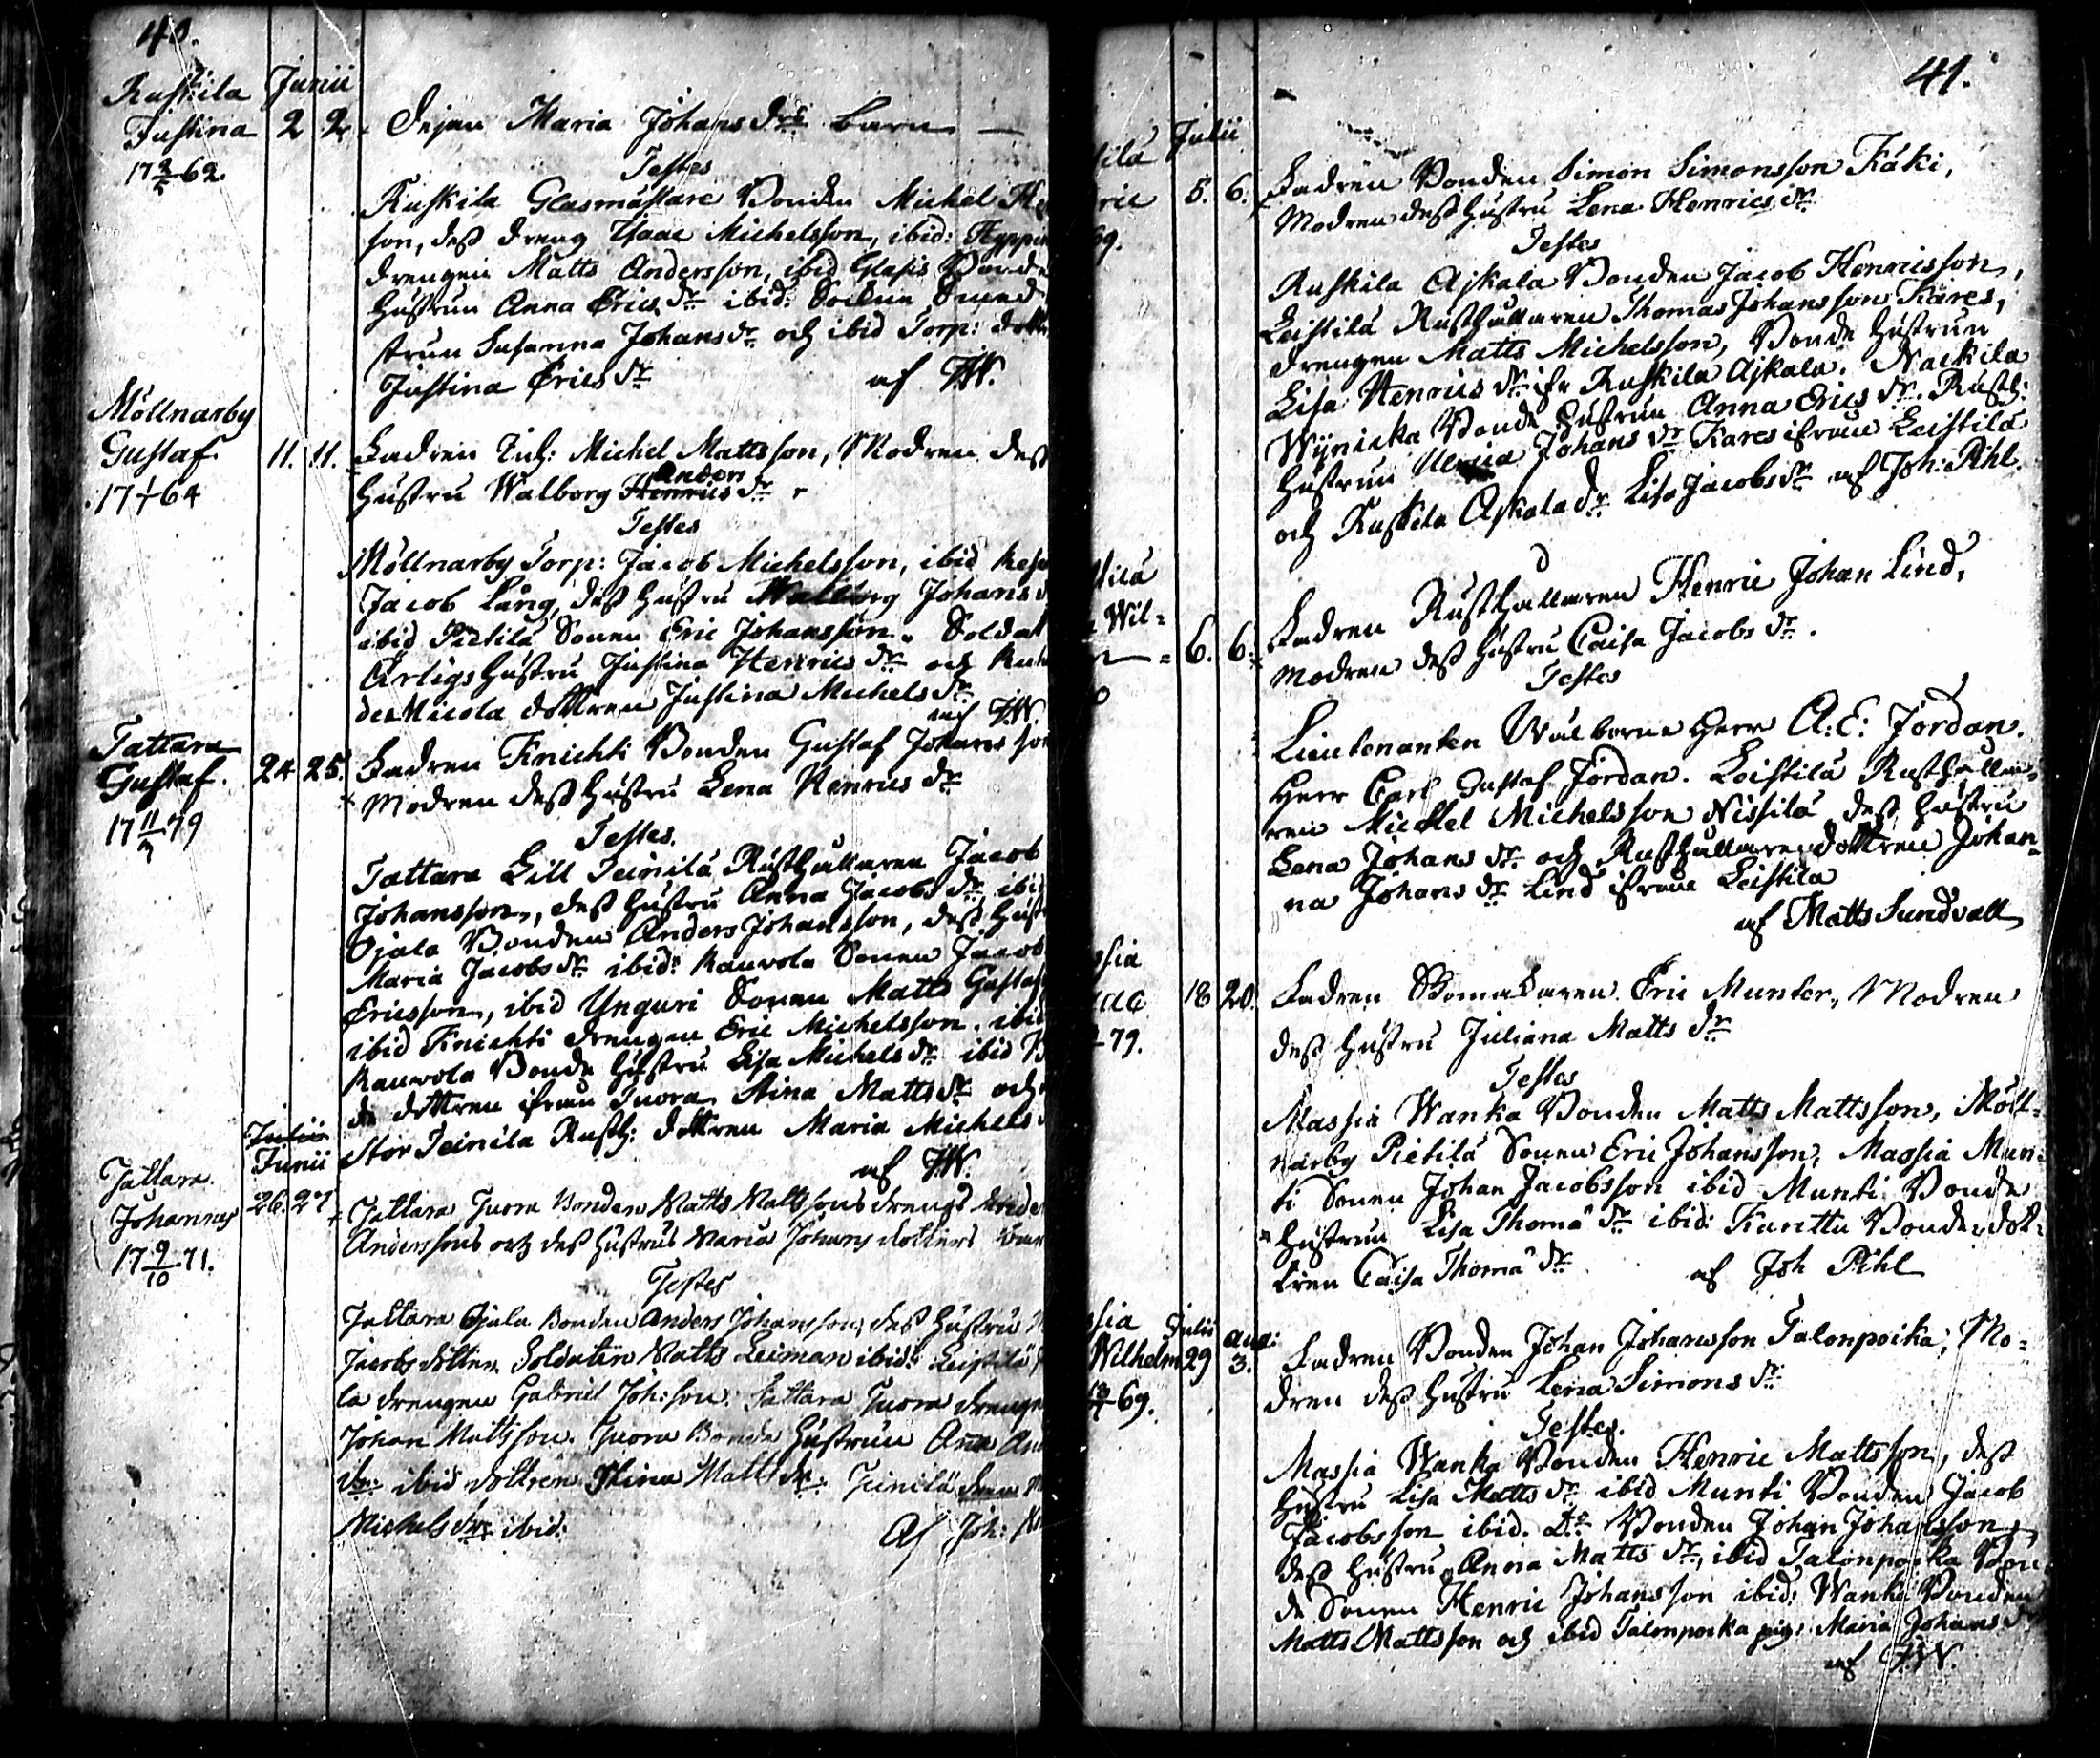 40.
Ruskila Junii
Justina 2 2. Pigan Maria Johansdrs barn —
17 2/5 62.
Testes
Ruskila Glasmästare Bonden Michel
son, dess dreng Isaac Michelsson, ibid:
drengen Matts Andersson, ibid Glasis Bonde
Hustrun Anna Ericsdr ibid: Socken Smed
strun Susanna Johansdr och ibid Torp:
Justina Ericsdr af JW.
Möllnarby
Gustaf 11. 11. Fadren Inh: Michel Mattsson, Modren dess
17 64 Hustru Walborg Henricsdr Anders
Testes
Möllnarby Torp: Jacob Michelsson, ibid
Jacob Lång, dess Hustru Walborg Johans
ibid Pietilä Sonen Eric Johansson. Soldat
Ärligs Hustru Justina Henricsdr och
Nicola dottren Justina Michelsdr
af JW.
Tattara
Gustaf. 24 25. Fadren Knichti Bonden Gustaf Johansson
17 11/7 79 Modren dess Hustru Lena Henricsdr
Testes.
Tattara Lill Teinilä Rusthållaren Jacob
Johansson, dess Hustru Anna Jacobsdr, ibid
Ojala Bonden Anders Johansson, dess Hust
Maria Jacobsdr ibid: Kauvola Sonen Jacob
Ericsson, ibid Unguri Sonen Matts Gustaf
ibid Knichti drengen Eric Michelsson. ibid
Kauvola Bonde Hustru Lisa Michelsdr ibid
de dottren ifrån Juora Stina Mattsdr och
Stor Teinilä Rusth: dottren Maria Michels
af JW.
Julii
Junii
Tattara 26. 27 Tattara Juora Bonden Matts Mattssons drengs
Johannes Anderssons och dess Hustrus Maria Johans dotters barn
17 9/10 71.
Testes
Tattara Ojala Bonden Anders Johansson, dess Hustru
Jacobs dotter. Soldaten Matts Leiman ibid: Leistilä
la drengen Gabriel Joh:son. Tattara Juora drenge
Johan Mattsson. Juora Bonde Hustrun Ana
dr: ibid dottren Stina Mattsdr. Teinilä
Michelsdr ibid: Af Joh:
41.
tilä Julii
ric 5. 6. Fadren Bonden Simon Simonsson Käki,
69. Modren dess Hustru Lena Henricsdr
Testes
Ruskila Ajkala Bonden Jacob Henricsson,
Leistilä Rusthållaren Thomas Johansson Kares,
drengen Matts Michelsson, Bonde Hustrun
Lisa Henricsdr ifr Ruskila Ajkala. Nackila
Wynicka Bonde Hustrun Anna Ericsdr. Rusth:
Hustrun Ulrica Johansdr Kares ifrån Leistilä
och Ruskila Ajkala dr Lisa Jacobsdr af Joh: Pihl.
tilä
Wil=
6. 6. Fadren Rusthållaren Henric Johan Lind,
Modren dess Hustru Caisa Jacobsdr.
Testes
Lieutenanten Wälborne Herr A: E: Jordan.
Herr Carl Gustaf Jordan. Leistilä Rusthålla=
ren Michel Michelsson Nissilä, dess Hustru
Lena Johansdr och Rusthållare dottren Johan=
na Johansdr Lind ifrån Leistilä
af Matts Sundvall
sia
18 20. Fadren Skomakaren Eric Munter, Modren
79. dess Hustru Juliana Mattsdr
Testes
Massia Wanka Bonden Matts Mattsson, Möll=
narby Pietilä Sonen Eric Johansson, Massia Mun=
ti Sonen Johan Jacobsson ibid Munti Bonde
Hustrun Lisa Thomædr ibid: Kunttu Bonde dot=
tren Caisa Thomædr af Joh Pihl
sia Julii Aug:
Wilhelm 29 3. Fadren Bonden Johan Johansson Talonpoika, Mo=
69. dren dess Hustru Lena Simonsdr
Testes.
Massia Wanka Bonden Henric Mattsson, dess
Hustru Lisa Mattsdr ibid Munti Bonden Jacob
Jacobsson ibid. Do Bonden Johan Johansson,
dess Hustru Anna Mattsdr, ibid Talonpoika Bon
de Sonen Henric Johansson ibid: Wanka Bonden
Matts Mattsson och ibid Talonpoika pig: Maria Johansdr
af JW.